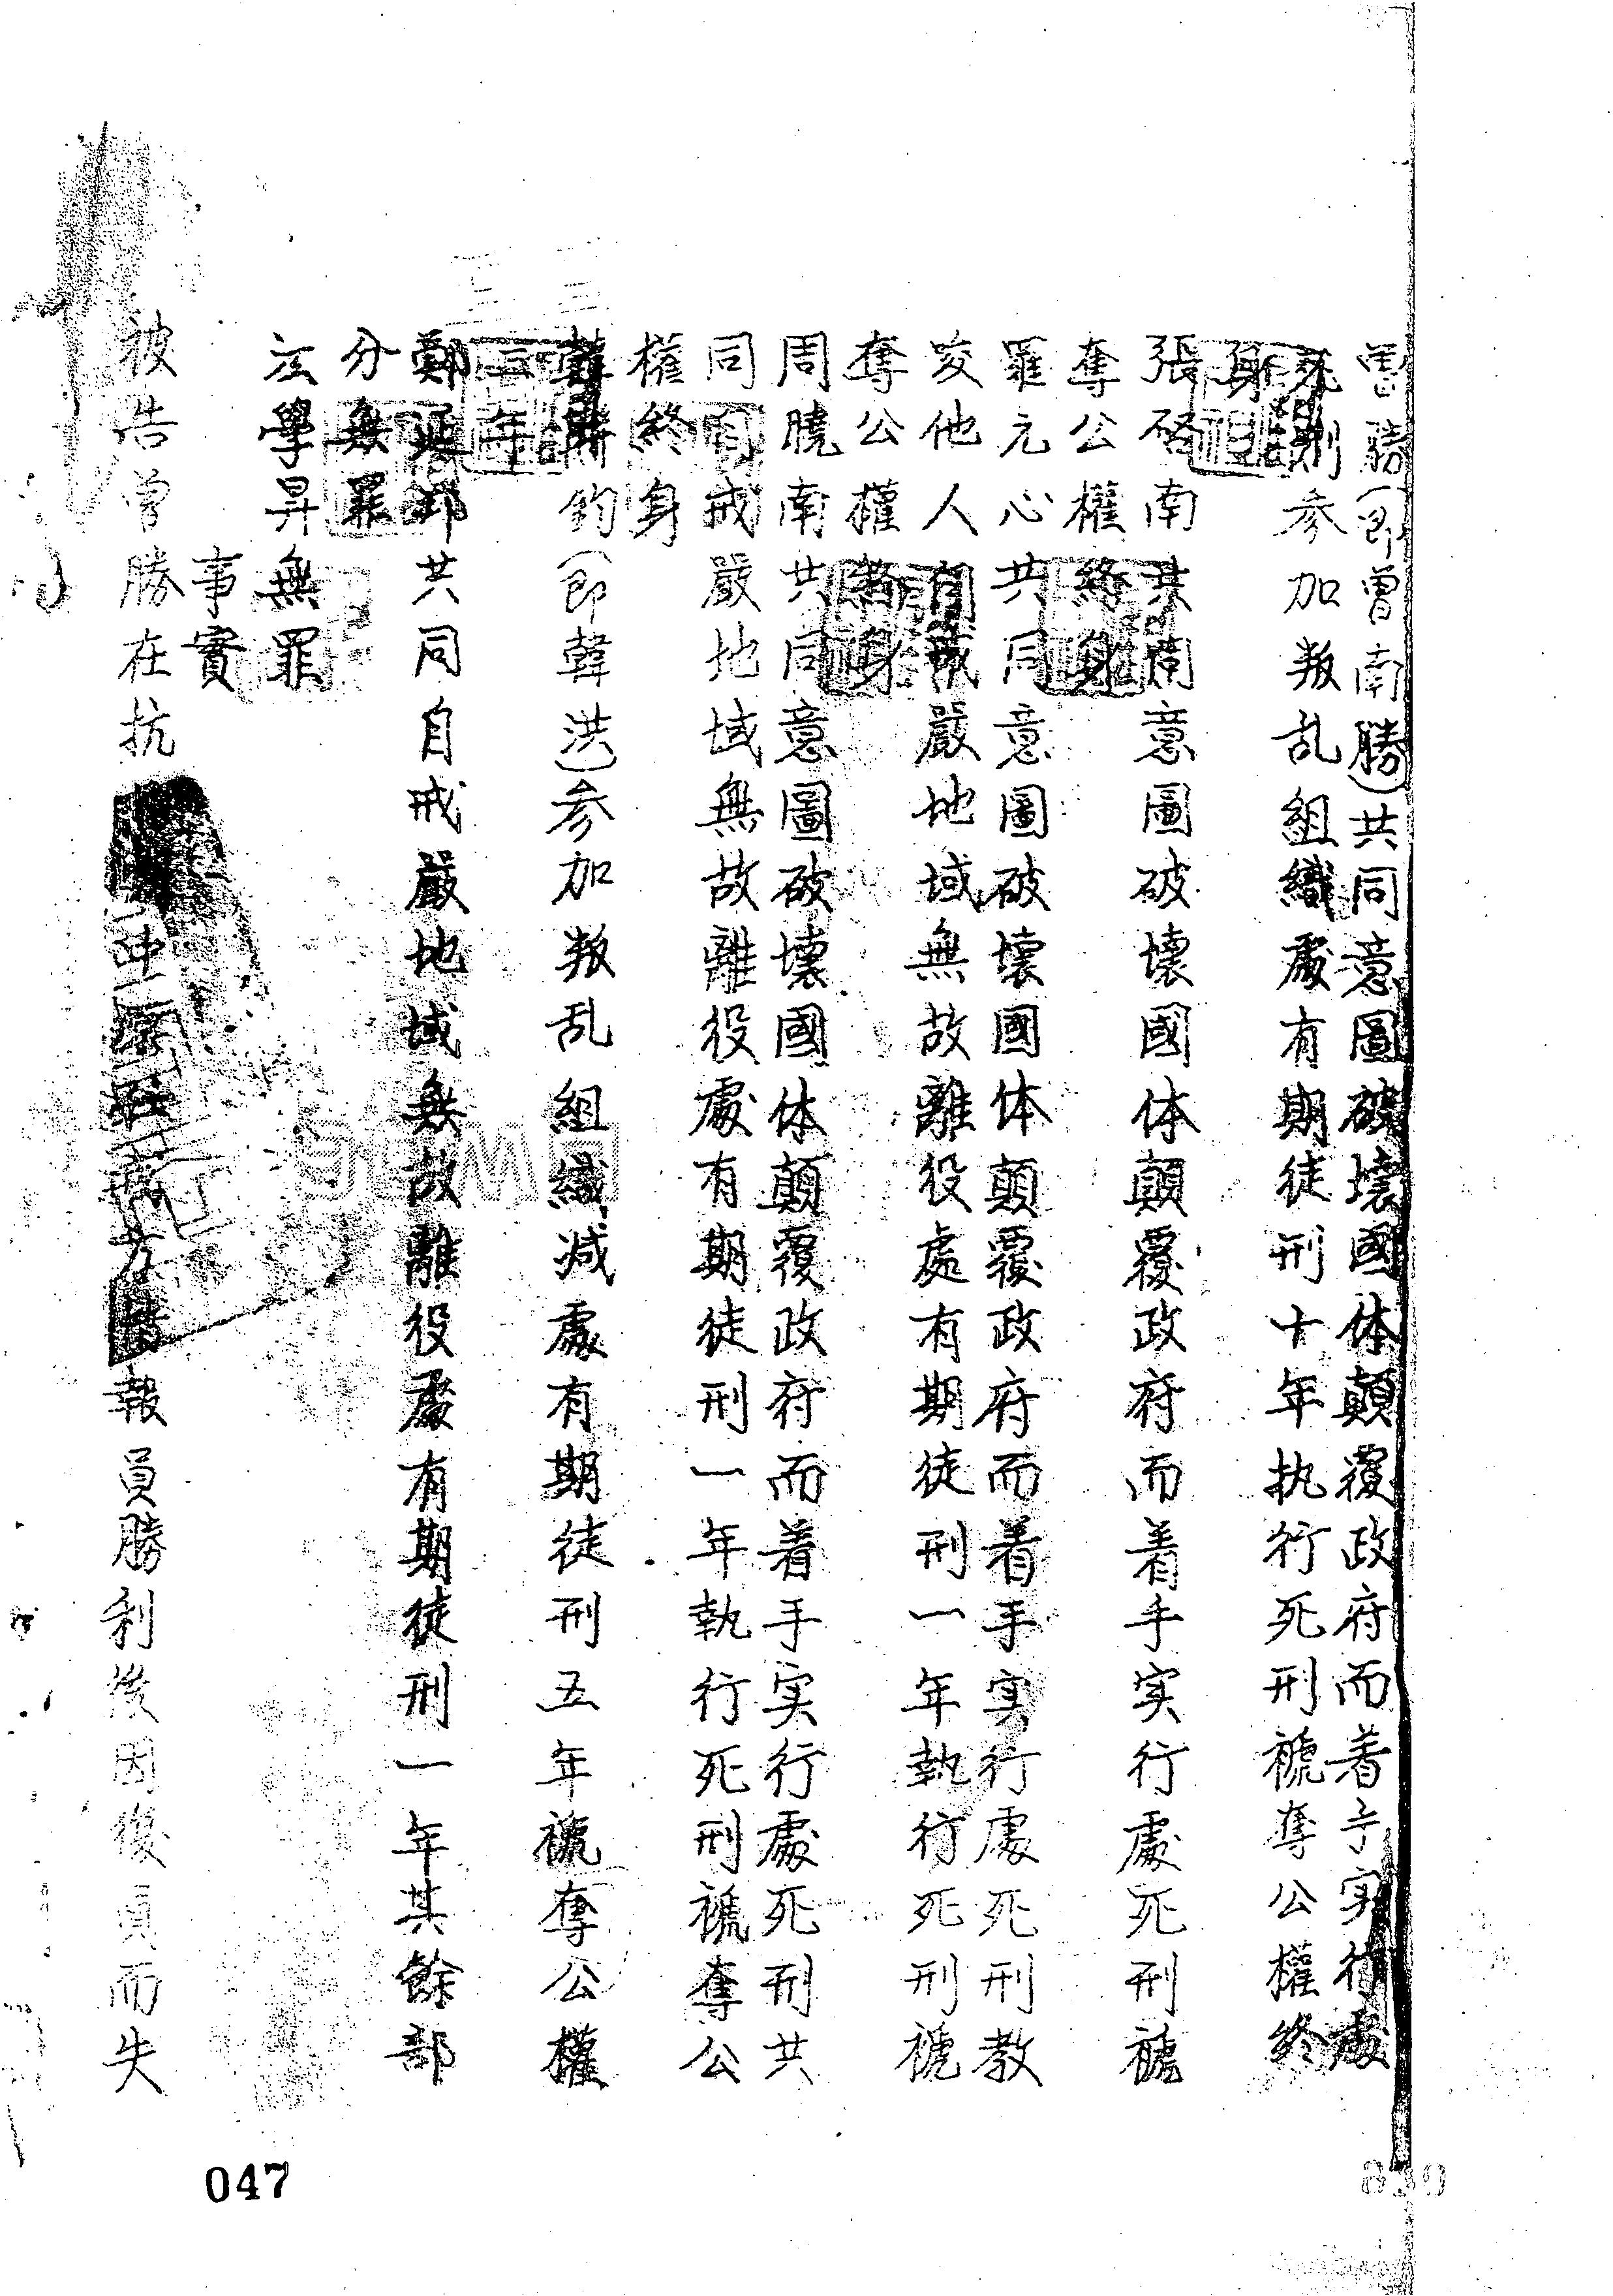 曾勝(即曾南勝)共同意圖破壞國体顛覆政府而着手实行處
死刑參加叛乱組織處有期徒刑十年执行死刑褫奪公權終
身
張啓南共同意圖破壞國体顛覆政府而着手实行處死刑褫
奪公權終身
羅元心共同意圖破壞國体顛覆政府而着手实行處死刑教
唆他人自戒嚴地域無故離役處有期徒刑一年執行死刑褫
奪公權終身
周曉南共同意圖破壞國体顛覆政府而着手实行處死刑共
同自戒嚴地域無故離役處有期徒刑一年執行死刑褫奪公
權終身
韓鈞(即韓洪)参加叛乱組織减處有期徒刑五年褫奪公權
三年
鄭延邦共同自戒嚴地域無故離役處有期徒刑一年其餘部
分無罪
江學昇無罪
事實
被告曾勝在抗報員勝利後因復員而失
047
830